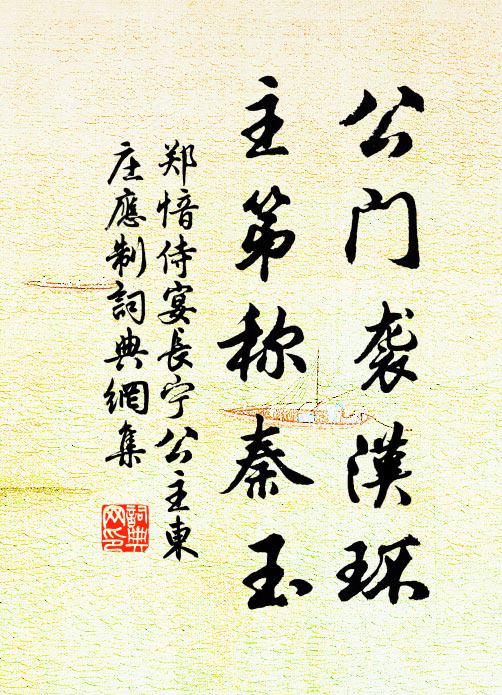 公门袭汉环
主第称秦玉
郑愔侍宴長宁公主東
庄應制詞典網集
詞典
网印